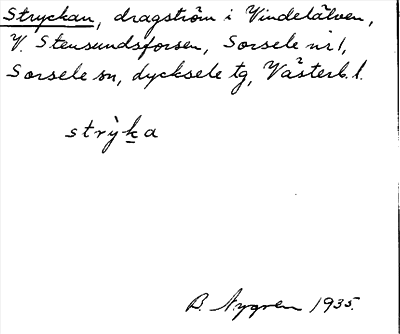 Stryckan, dragström i Vindelälven,
V. Stensundsforsen, Sorsele nr 1,
Sorsele sn, Lycksele tg, Västerb. l.
strỳka
B. Nygren 1935.